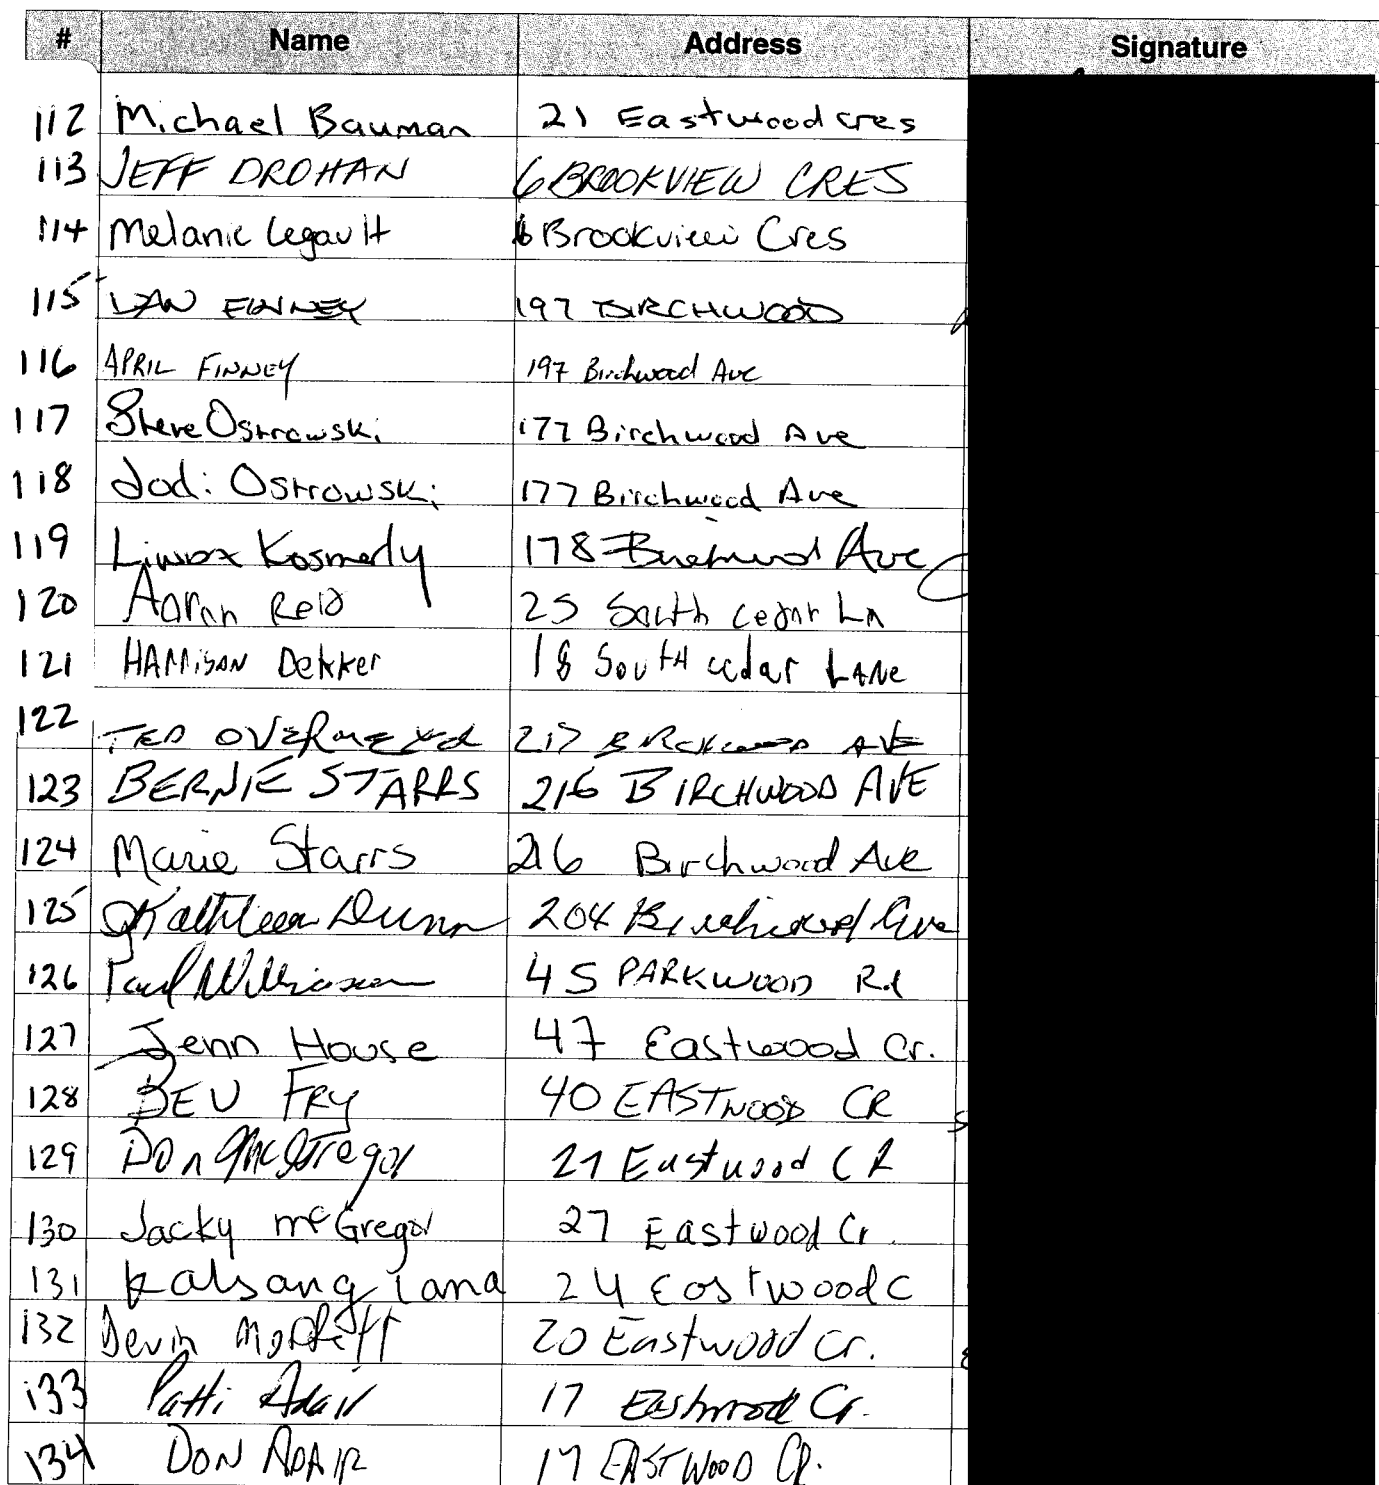 # Name Address Signature
112 Michael Bauman 21 Eastwood cres
113 JEFF DROHAN 6 BROOKVIEW CRES
114 Melanie Legault 6 Brookview Cres
115 FINNEY 197 BIRCHWOOD
116 APRIL FINNEY 197 Birchwood Ave
117 Steve Ostrowski 177 Birchwood Ave
118 Jodi Ostrowski 177 Birchwood Ave
119 Kosmerly 178 Birchwood Ave
120 Aaron Reid 25 South Cedar Ln
121 HARRISON Dekker 18 South cedar LANE
122 TED 217 BIRCHWOOD AVE
123 BERNIE STARRS 216 BIRCHWOOD AVE
124 Marie Starrs 216 Birchwood Ave
125 Kathleen Dunn 204 Birchwood Ave
126 Paul Wilkinson 45 PARKWOOD Rd
127 Jenn House 47 Eastwood Cr.
128 BEV FRY 40 EASTWOOD CR
129 Don McGregor 27 Eastwood CR
130 Jacky McGregor 27 Eastwood Cr
131 Kalsang 24 Eastwood C
132 Devin 20 Eastwood Cr.
133 Patti Adair 17 Eastwood Cr.
134 DON ADAIR 17 EASTWOOD CR.